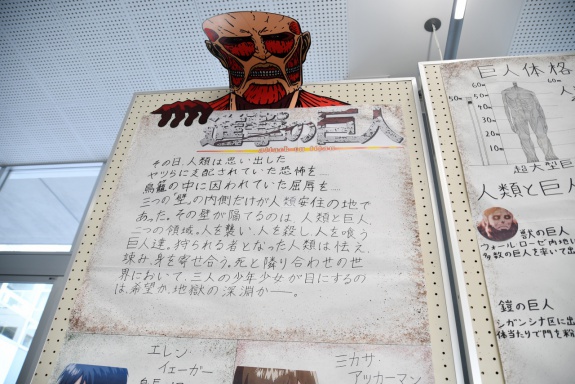 進撃の巨人
attack on titan
その日、人類は思い出した
ヤツらに支配されていた恐怖を…
鳥籠の中に囚われていた屈辱を…
三つの"壁"の内側だけが人類安住の地で
あった。その壁が隔てるのは、人類と巨人
二つの領域。人を襲い、人を殺し、人を喰う
巨人達。狩られる者となった人類は怯え、
竦み、身を寄せ合う。死と隣り合わせの世
界において、三人の少年少女が目にするの
は、希望か、地獄の深淵か――。
エレン・
イェーガー
ミカサ・
アッカーマン
巨人体格
60m
50m
40
30
20
10
60m
50
超大型巨
人類と巨
獣の巨人
ウォールローゼ内地に
多数の巨人を率いて出
鎧の巨人
シガンシナ区に出
体当たりで門を粉